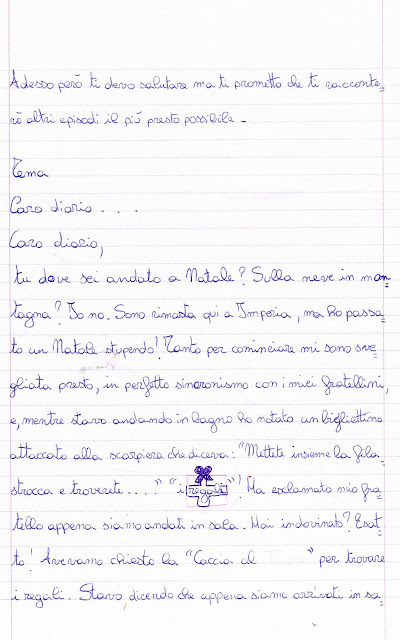 Adesso però ti devo salutare ma ti prometto che ti racconte=
rò altri episodi il più presto possibile -
Tema
Caro diario . . . .
Caro diario,
tu dove sei andato a Natale? Sulla neve in mon=
tagna? Io no. Sono rimasta qui a Imperia, ma ho passa=
to un Natale stupendo! Tanto per cominciare mi sono sve=
gliata presto, in perfetto sincronismo con i miei fratellini,
e, mentre stavo andando in bagno ho notato un bigliettino
attaccato alla scarpiera che diceva: "Mettete insieme la fila=
strocca e troverete....." "i regali"! Ha esclamato mio fra=
tello appena siamo andati in sala. Hai indovinato? Esat=
to! Avevamo chiesto la "Caccia al " per trovare
i regali. Stavo, dicendo che appena siamo arrivati in sa=